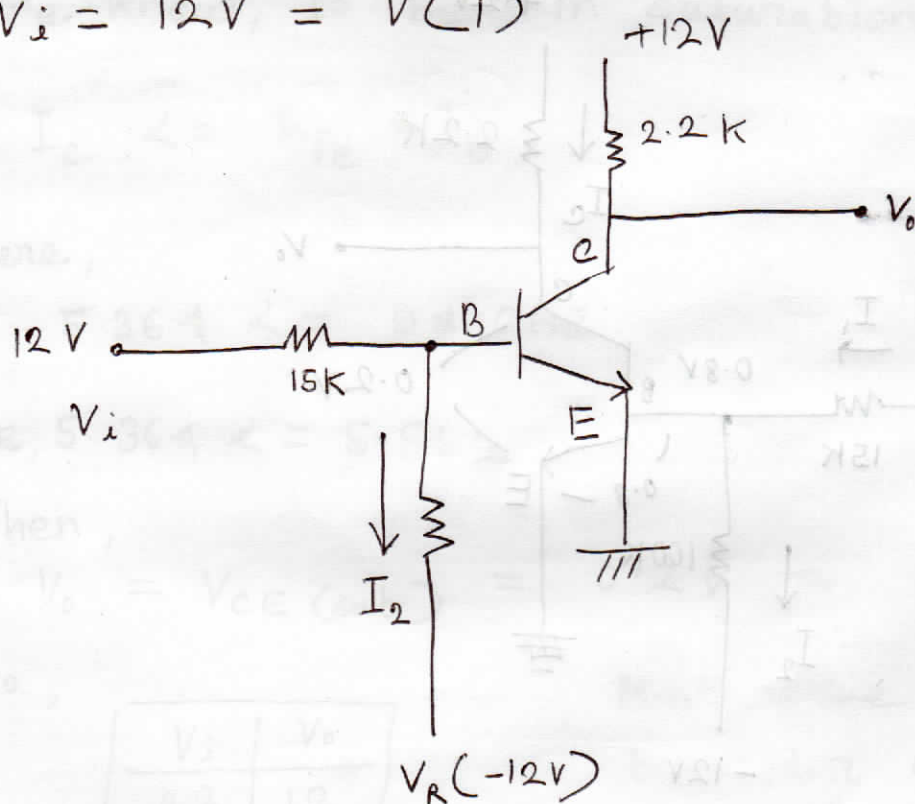 Vi = 12V = V(1)
+12V
2.2 K
Vo
C
12 V
B
15K
Vi
E
I2
VR (-12V)